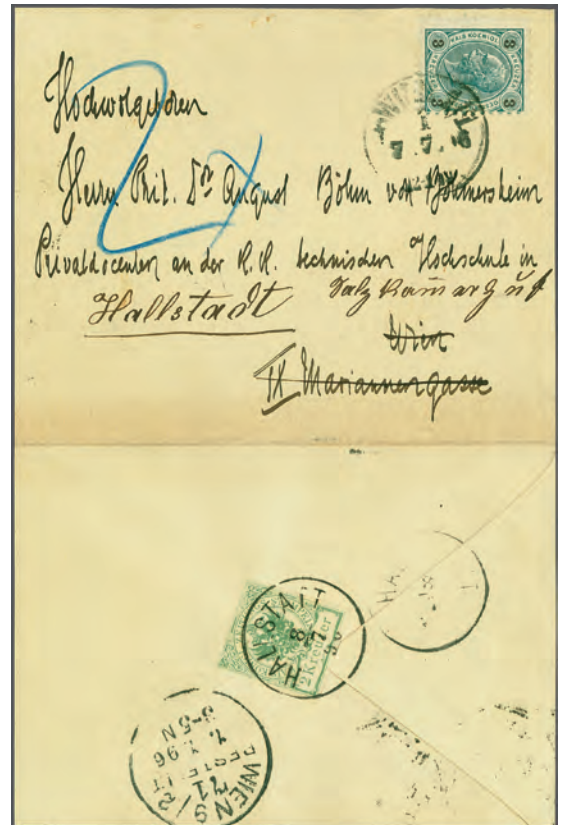 3 3
3 3
7.7.
2
Hochwolgeboren
Herrn Phil. Dr August Böhm von Böhmersheim
Privatdocenten an der K.K. technischen Hochschule in
Hallstadt Salzkammergut
Wien
IX Mariannengasse
HALLSTATT
8
7
2 Kreuzer
HA T
WIEN 9/2
71
BESTELLT
7. 96
3-5N